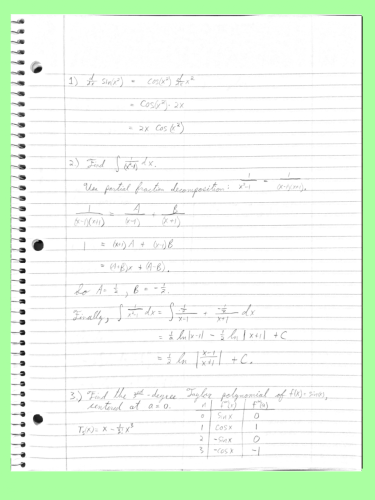 1) d/dx sin(x²) = cos(x²) d/dx x²
= cos(x²)·2x
= 2x cos(x²)
2) Find ∫ 1/(x²-1) dx.
Use partial fraction decomposition: 1/(x²-1) = 1/((x-1)(x+1)).
1/((x-1)(x+1)) = A/(x-1) + B/(x+1)
1 = (x+1)A + (x-1)B
= (A+B)x + (A-B).
So A = 1/2, B = -1/2.
Finally, ∫ 1/(x²-1) dx = ∫ (1/2)/(x-1) + (-1/2)/(x+1) dx
= 1/2 ln|x-1| - 1/2 ln|x+1| + C
= 1/2 ln |(x-1)/(x+1)| + C.
3.) Find the 3rd-degree Taylor polynomial of f(x) = sin(x),
centered at a=0.
n fⁿ(x) fⁿ(a)
0 sin x 0
T₃(x) = x - 1/3! x³
1 cos x 1
2 -sin x 0
3 -cos x -1